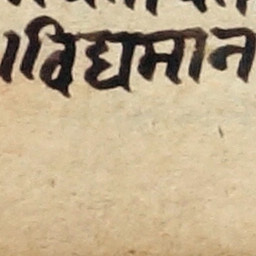 ।विद्यमान